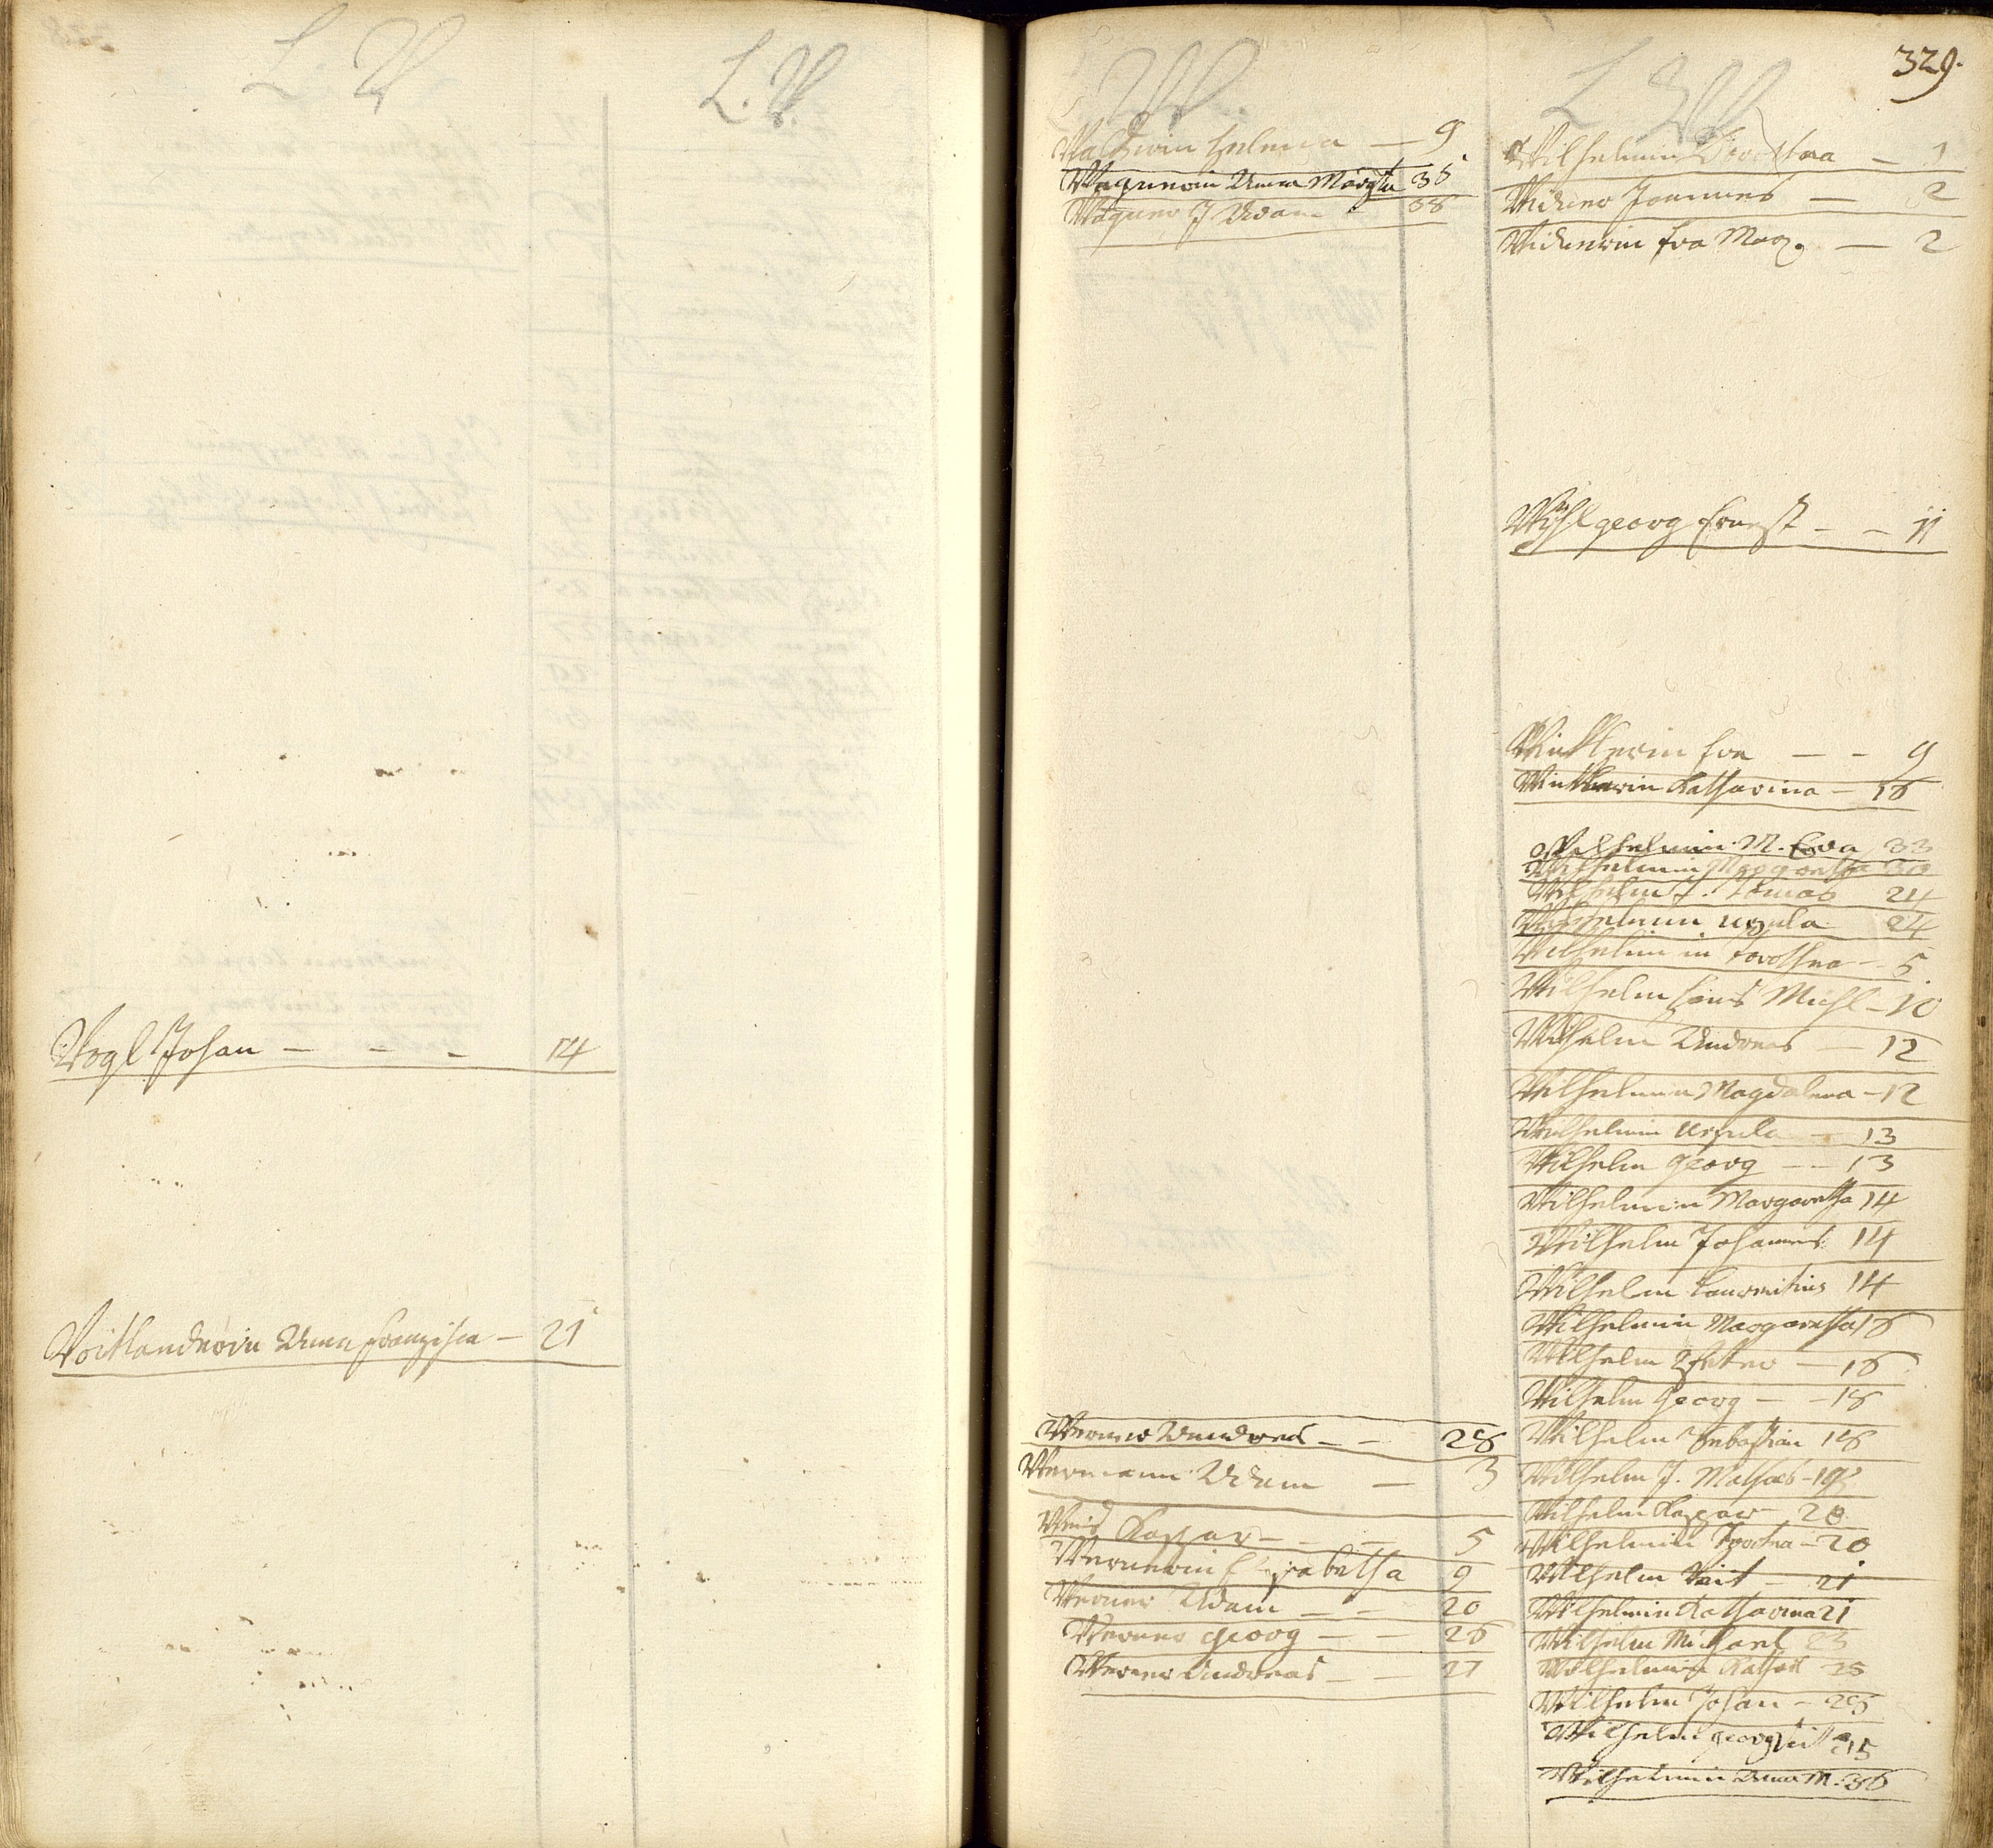 L. V.
L. V.
Vogl Johan - - - 14
Voitlandrein Anna Franzisca - 21
W.
L W
329.
Helena - 9
Wagnerin Anna Margta 35
Wagner J Adam - 38
Werner Andreas - - 28
Wermann Adam - 3
Weis Kaspar - - - 5
Wernerin Elisabetha 9
Werner Adam - - 20
Werner Georg - - 26
Werner Andreas - - 27
Wilhelmin Dorothea - 1
Widner Joannes - 2
Widnerin Eva Marg. - 2
georg Ernest - - 11
Winklerin Eva - - 9
Winklerin Katharina - 18
Wilhelmin M. Eva 33
Wilhelmin Margaretha 30
Wilhelm J. Thomas 24
Wilhelmin Ursula 24
Wilhelmin Dorothea - 5
Wilhelm Hans Michl - 10
Wilhelm Andreas - 12
Wilhelmin Magdalena - 12
Wilhelmin Ursula - 13
Wilhelm Georg - - 13
Wilhelmin Margaretha 14
Wilhelm Johannes 14
Wilhelm Laurentius 14
Wilhelmin Margaretha 18
Wilhelm Petter - 18
Wilhelm Georg - - 18
Wilhelm Sebastian 18
Wilhelm J. Mathaes - 19
Wilhelm Kaspar 20
Wilhelmin Dorothea - 20
Wilhelm Veit - 21
Wilhelmin Katharina 21
Wilhelm Michael 23
Wilhelmin Kathar 25
Wilhelm Johan - 25
Wilhelm Georg Veit 35
Wilhelmin Anna M. 36